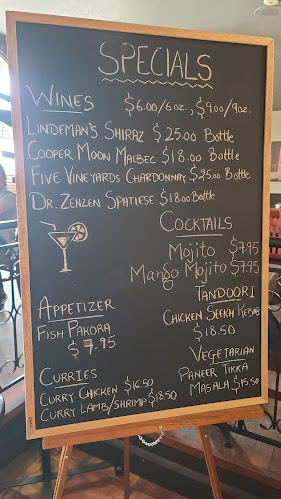 SPECIALS
WINES $6.00/6oz, $9.00/9oz.
LINDEMAN'S SHIRAZ $25.00 Bottle
COOPER MOON MALBEC $18.00 Bottle
FIVE VINEYARDS CHARDONNAY $25.00 Bottle
DR. ZENZEN SPATLESE $18.00 Bottle
COCKTAILS
Mojito $7.95
Mango Mojito $7.95
APPETIZER
FISH PAKORA
$7.95
TANDOORI
CHICKEN SEEKH KEBAB
$18.50
CURRIES
CURRY CHICKEN $16.50
CURRY LAMB/SHRIMP $18.50
VEGETARIAN
PANEER TIKKA
MASALA $15.50